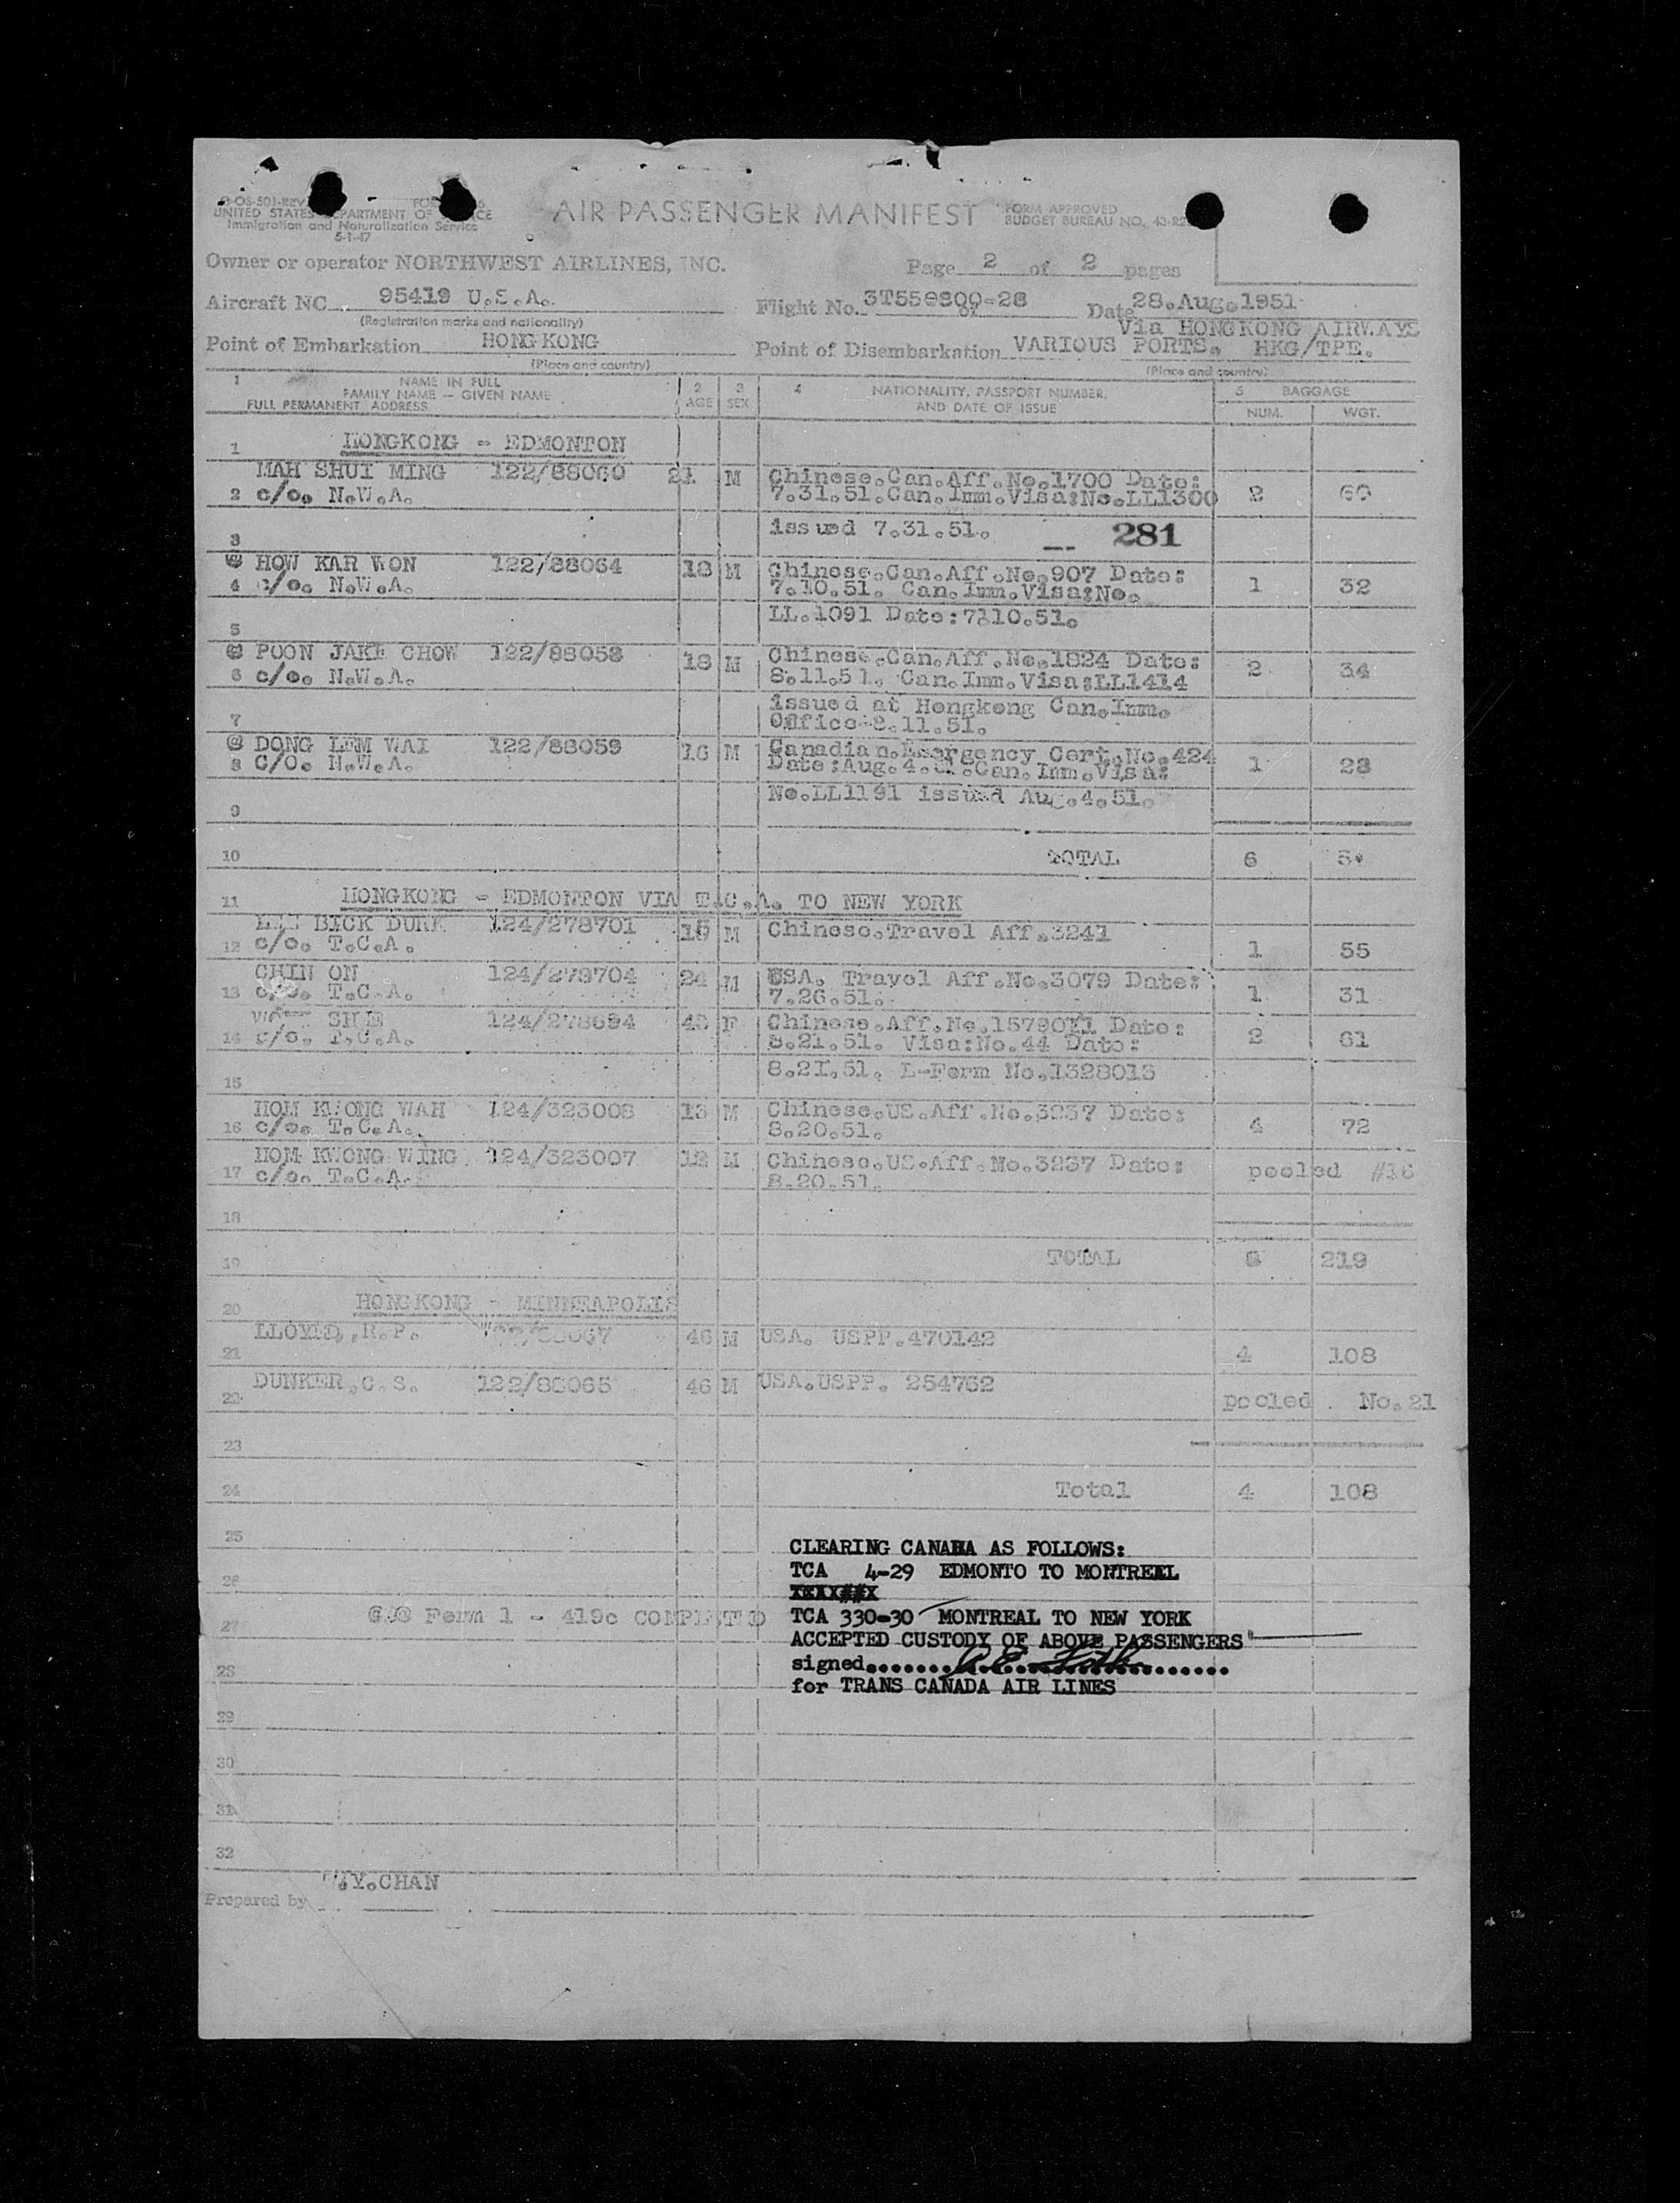 UNITED STATES
Immigration and Naturalization Service
5-1-47
AIR PASSENGER MANIFEST
FORM APPROVED
BUDGET BUREAU NO. 43-R2
Owner or operator NORTHWEST AIRLINES, INC.
Page 2 of 2 pages
Aircraft NC 95419 U.S.A.
(Registration marks and nationality)
Flight No. of
Date 28.Aug.1951
Via HONGKONG AIRWAYS
Point of Embarkation HONG KONG
(Place and country)
Point of Disembarkation VARIOUS PORTS. HKG/TPE.
(Place and country)
1 NAME IN FULL
FAMILY NAME — GIVEN NAME
FULL PERMANENT ADDRESS
2 AGE
3 SEX
4 NATIONALITY, PASSPORT NUMBER,
AND DATE OF ISSUE
5 BAGGAGE
NUM. WGT.
1 HONGKONG - EDMONTON
MAH SHUI MING 122/88060 21 M Chinese.Can.Aff.No.1700 Date:
2 c/o. N.W.A. 7.31.51.Can.Imm.Visa:No.LL1300 2 60
3 issued 7.31.51. -- 281
@ HOW KAR WON 122/88064 18 M Chinese.Can.Aff.No.907 Date:
4 c/o. N.W.A. 7.10.51. Can.Imm.Visa:No. 1 32
5 LL.1091 Date:7.10.51.
@ POON JAKE CHOW 122/88058 18 M Chinese.Can.Aff.No.1824 Date:
6 c/o. N.W.A. 8.11.51. Can.Imm.Visa:LL1414 2 34
7 issued at Hongkong Can.Imm.
Office 8.11.51.
@ DONG LEM WAI 122/88059 16 M Canadian.Emergency Cert.No.424
8 C/O. N.W.A. Date:Aug.4.51.Can.Imm.Visa: 1 28
9 No.LL1191 issued Aug.4.51.
10 TOTAL 6
11 HONGKONG - EDMONTON VIA T.C.A. TO NEW YORK
BICK DUNK 124/278701 M Chinese.Travel Aff.3241
12 c/o. T.C.A. 1 55
CHIN ON 124/278704 24 M USA. Travel Aff.No.3079 Date:
13 c/o. T.C.A. 7.26.51. 1 31
SHEE 124/278694 F Chinese.Aff.No. Date:
14 c/o. T.C.A. 8.21.51. Visa:No.44 Date: 2 61
15 8.21.51. L-Form No.1328013
HOM KWONG WAH 124/323008 13 M Chinese.US.Aff.No.3237 Date:
16 c/o. T.C.A. 8.20.51. 4 72
HOM KWONG WING 124/323007 12 M Chinese.US.Aff.No.3237 Date:
17 c/o. T.C.A. 8.20.51. pooled #16
18
19 TOTAL 8 219
20 HONGKONG - MINNEAPOLIS
LLOYD,R.P. 46 M USA. USPP.470142
21 4 108
DUNKER,C.S. 122/88065 46 M USA.USPP. 254762
22 pooled. No.21
23
24 Total 4 108
25
CLEARING CANADA AS FOLLOWS:
TCA 4-29 EDMONTO TO MONTREAL
26
27 Form 1 - 419c COMPLETED
TCA 330-30 MONTREAL TO NEW YORK
ACCEPTED CUSTODY OF ABOVE PASSENGERS"
28 signed
for TRANS CANADA AIR LINES
29
30
31
32
Prepared by Y.CHAN